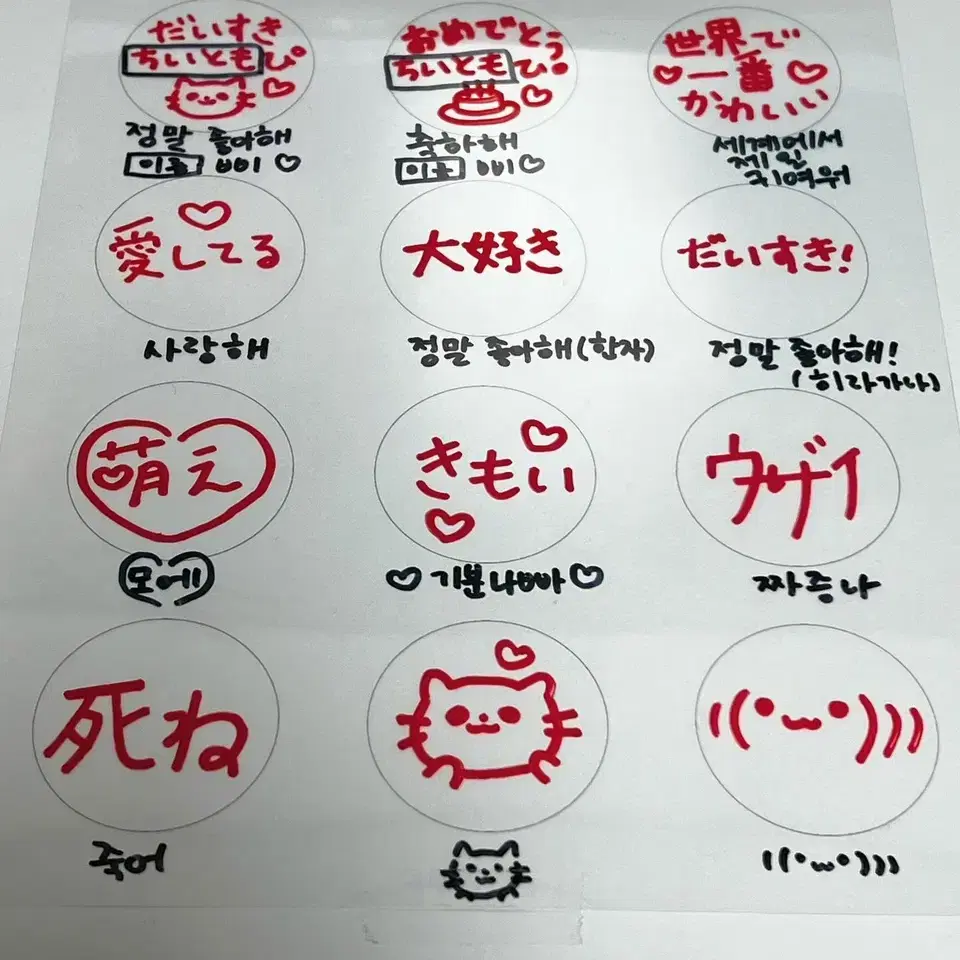 だいすき
ちいともぴ
おめでとう
ちいともぴ
世界で
一番
かわいい
정말 좋아해
이름 삐 ♡
축하해
이름 삐 ♡
세계에서
제일
귀여워
愛してる
大好き
だいすき!
사랑해
정말 좋아해(한자)
정말 좋아해!
(히라가나)
萌え
きもい
ウザイ
모에
♡기분나빠♡
짜증나
死ね
((•ω•)))
죽어
((•ω•)))